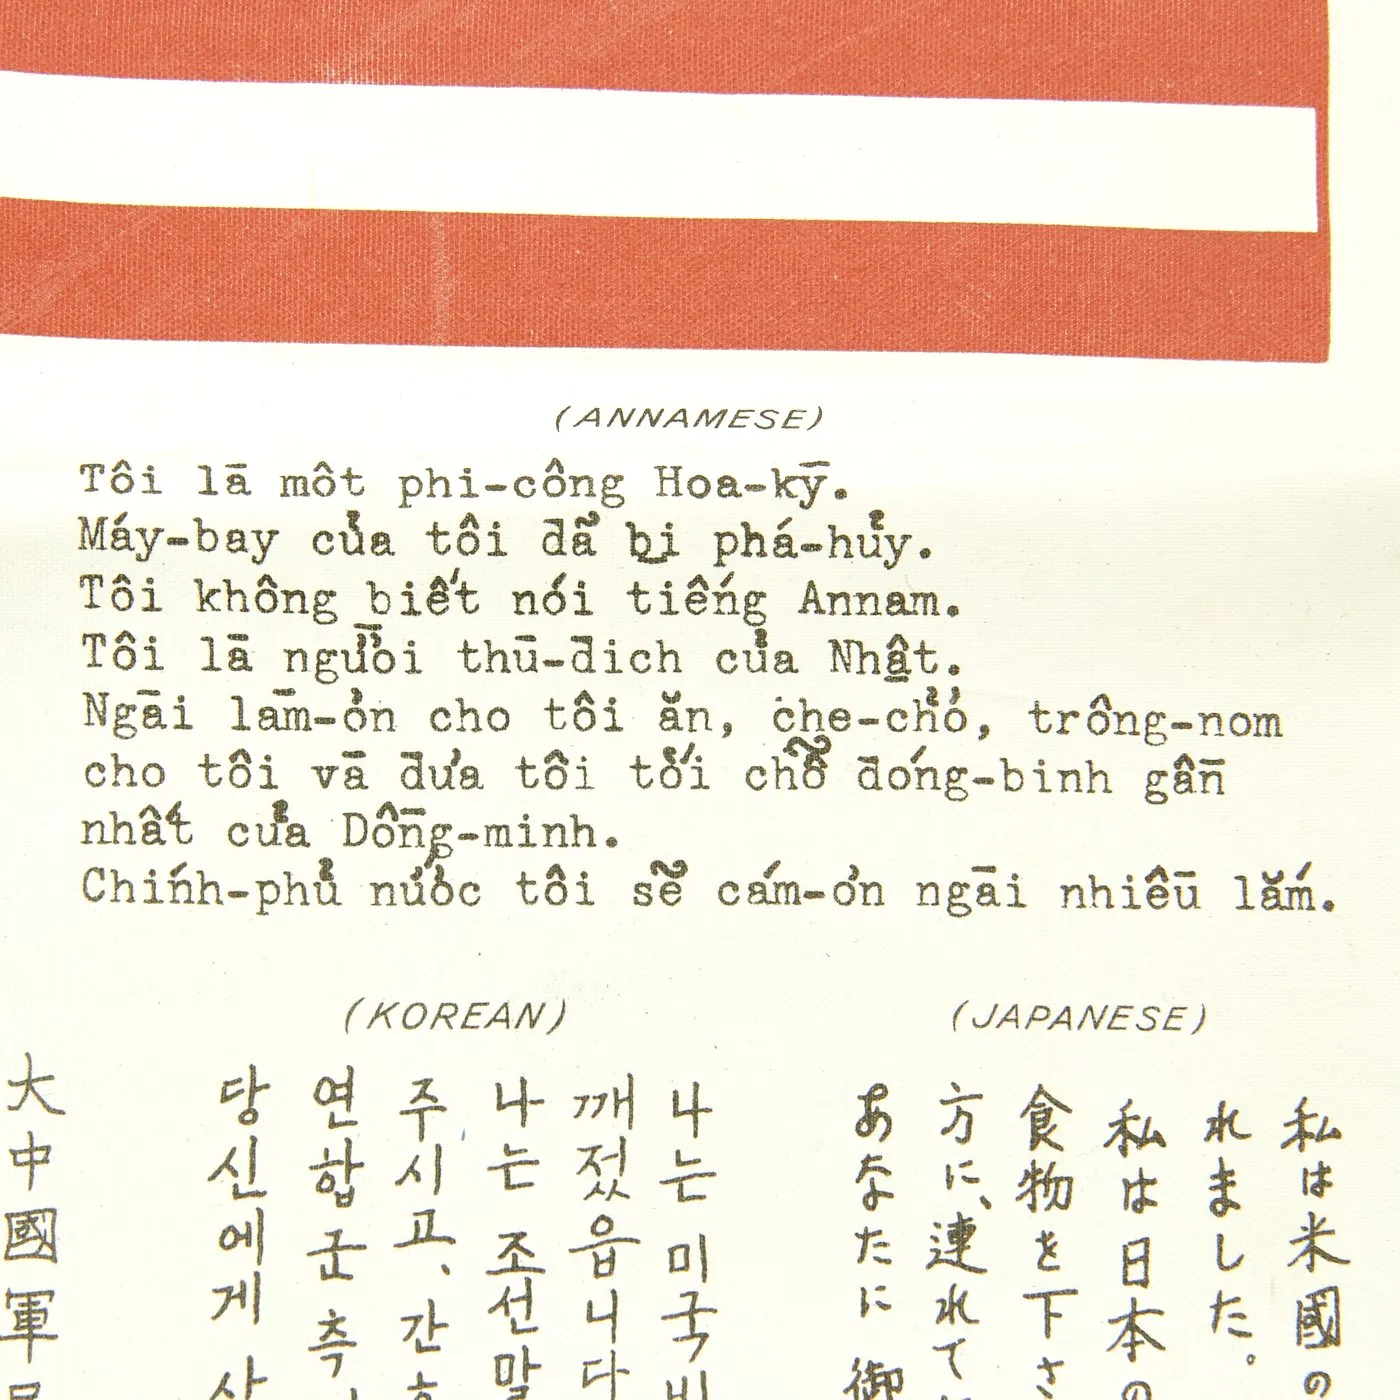 (ANNAMESE)
Tôi lā môt phi-công Hoa-kȳ.
Máy-bay của tôi đã bị phá-hủy.
Tôi không biết nói tiếng Annam.
Tôi lā người thū-đich của Nhật.
Ngāi lām-ơn cho tôi ăn, che-chở, trông-nom
cho tôi vā đưa tôi tới chỗ đóng-binh gần
nhất của Đồng-minh.
Chính-phủ nước tôi sẽ cám-ơn ngāi nhiều lắm.
(KOREAN)
나는 미국
깨젔읍니다
나는 조선말
주시고、간
연합군 측
당신에게
大中國軍
(JAPANESE)
私は米國の
れました。
私は日本の
食物を下さ
方に、連れて
あなたに 御